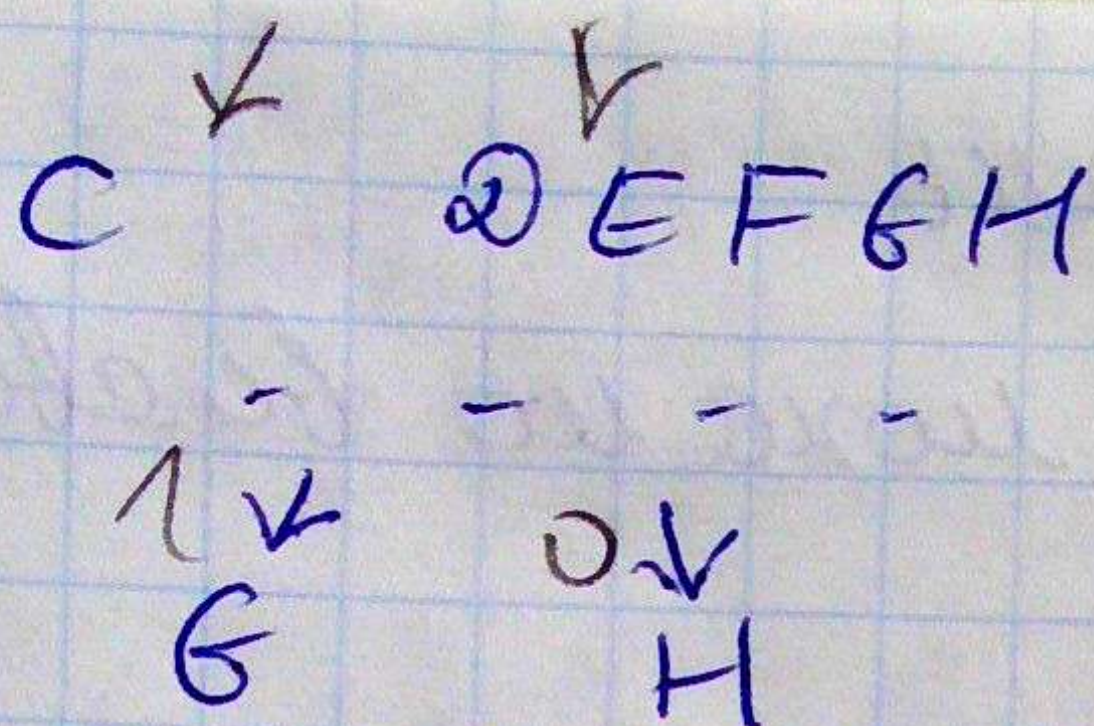 C D E F G H
- - - -
1 0
G H